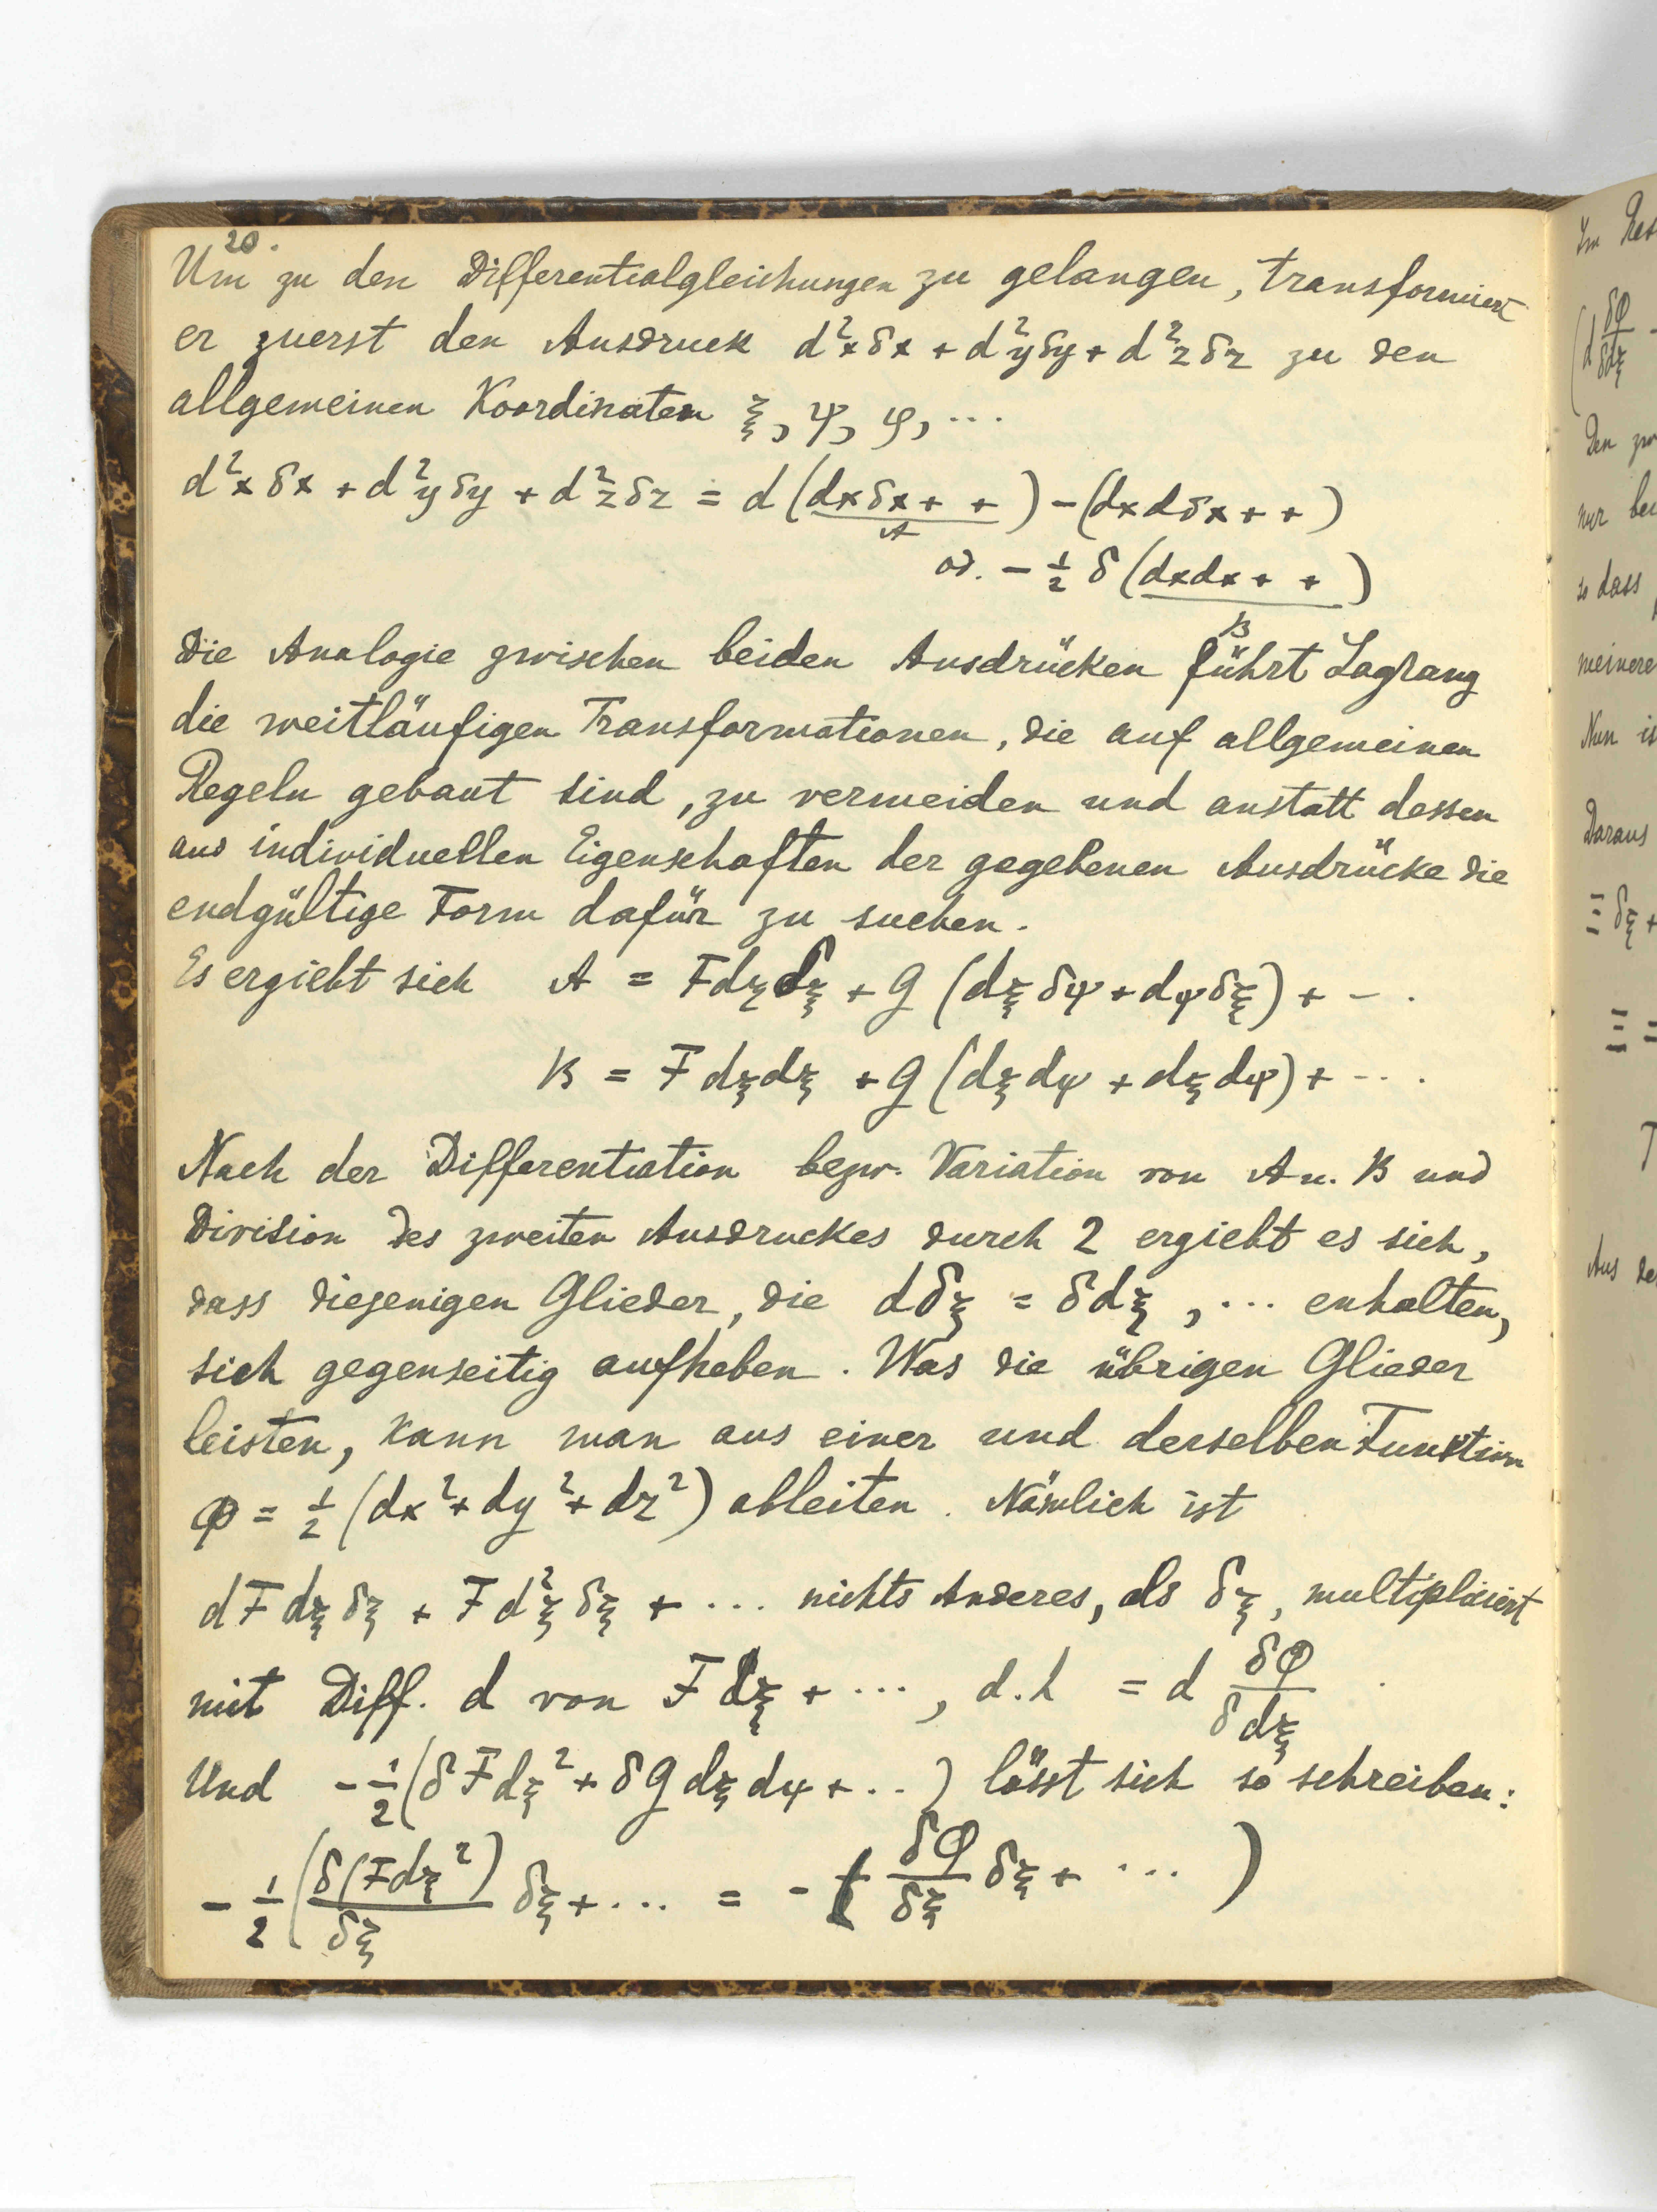 20.
Um zu den Differentialgleichungen zu gelangen, transformiert
er zuerst den Ausdruck d²xδx + d²yδy + d²zδz zu den
allgemeinen Koordinaten ξ, ψ, φ, ...
d²xδx + d²yδy + d²zδz = d(dxδx + +) - (dxdδx + +)
A
od. - ½ δ(dxdx + +)
B
Die Analogie zwischen beiden Ausdrücken führt Lagrang
die weitläufigen Transformationen, die auf allgemeinen
Regeln gebaut sind, zu vermeiden und anstatt dessen
aus individuellen Eigenschaften der gegebenen Ausdrücke die
endgültige Form dafür zu suchen.
Es ergiebt sich A = Fdξδξ + G (dξδψ + dψδξ) + - .
B = Fdξdξ + G (dξdψ + dξdψ) + ...
Nach der Differentiation bezw. Variation von A u. B und
Division des zweiten Ausdruckes durch 2 ergiebt es sich,
dass diejenigen Glieder, die dδξ = δdξ, ... enhalten,
sich gegenseitig aufheben. Was die übrigen Glieder
leisten, kann man aus einer und derselben Funktion
Φ = ½ (dx² + dy² + dz²) ableiten. Nämlich ist
dFdξδξ + Fd²ξδξ + ... nichts Anderes, als δξ, multipliciert
mit Diff. d von Fdξ + ..., d.h = d δΦ/δdξ
Und -½(δFdξ² + δGdξdψ + ..) lässt sich so schreiben:
-½(δ(Fdξ²)/δξ δξ + ... = - δΦ/δξ δξ + ... )
Im
δΦ
δdξ
Den
nur
so dass
meinere
Nun is
Daraus
Ξ δξ +
Ξ =
T
Aus de